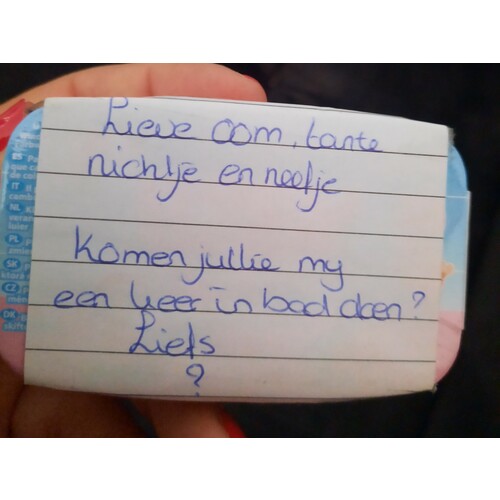 Lieve oom, tante
nichtje en neefje
Komen jullie my
een keer in bad doen?
Liefs
?
ES
IT
NL
PL
SK
CZ